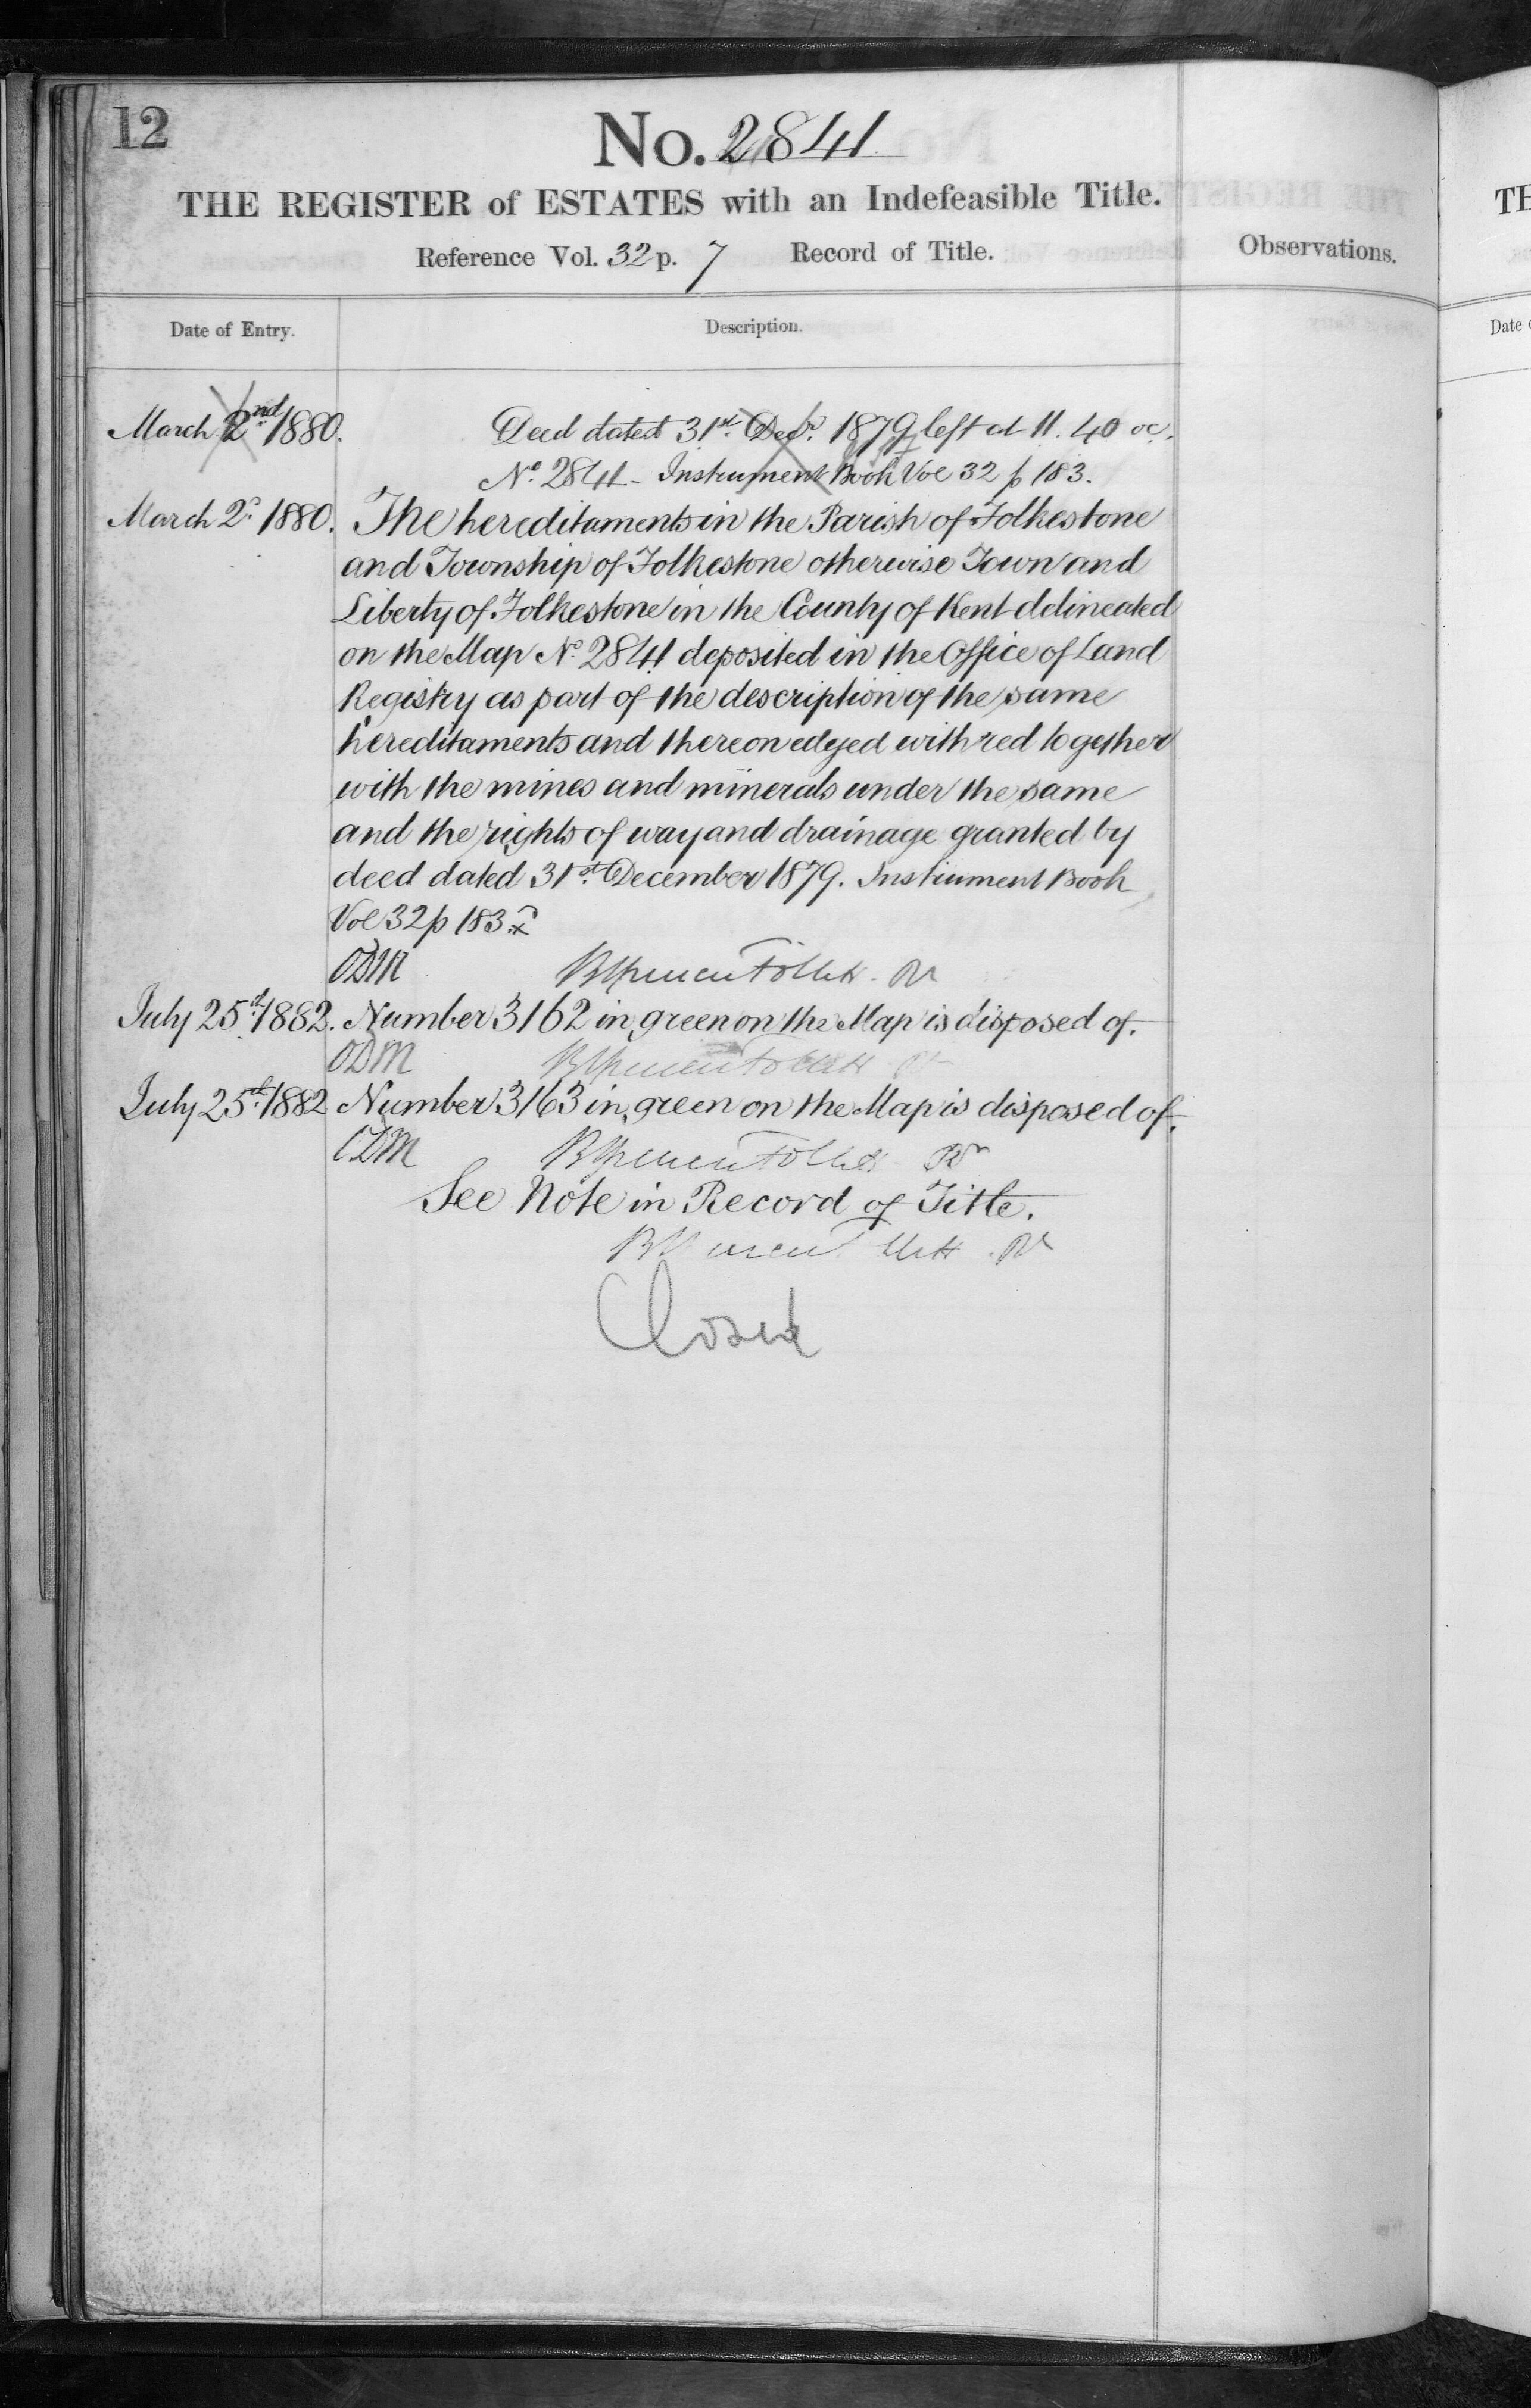 12
No. 2841
THE REGISTER of ESTATES with an Indefeasible Title.
Reference Vol. 32 p. 7 Record of Title.
Observations.
Date of Entry. Description.
March 2nd 1880. Deed dated 31st Decr. 1879 left at 11.40 oc.
No. 2841 - Instrument Book Vol 32 p 183.
March 2d. 1880. The hereditaments in the Parish of Folkestone
and Township of Folkestone otherwise Town and
Liberty of Folkestone in the County of Kent delineated
on the Map No. 2841 deposited in the Office of Land
Registry as part of the description of the same
hereditaments and thereon edged with red together
with the mines and minerals under the same
and the rights of way and drainage granted by
deed dated 31st December 1879. Instrument Book
Vol 32 p 183.
ODM
July 25th 1882. Number 3162 in green on the Map is disposed of.
ODM
July 25th 1882 Number 3163 in green on the Map is disposed of.
ODM
See Note in Record of Title.
Closed
TH
Date